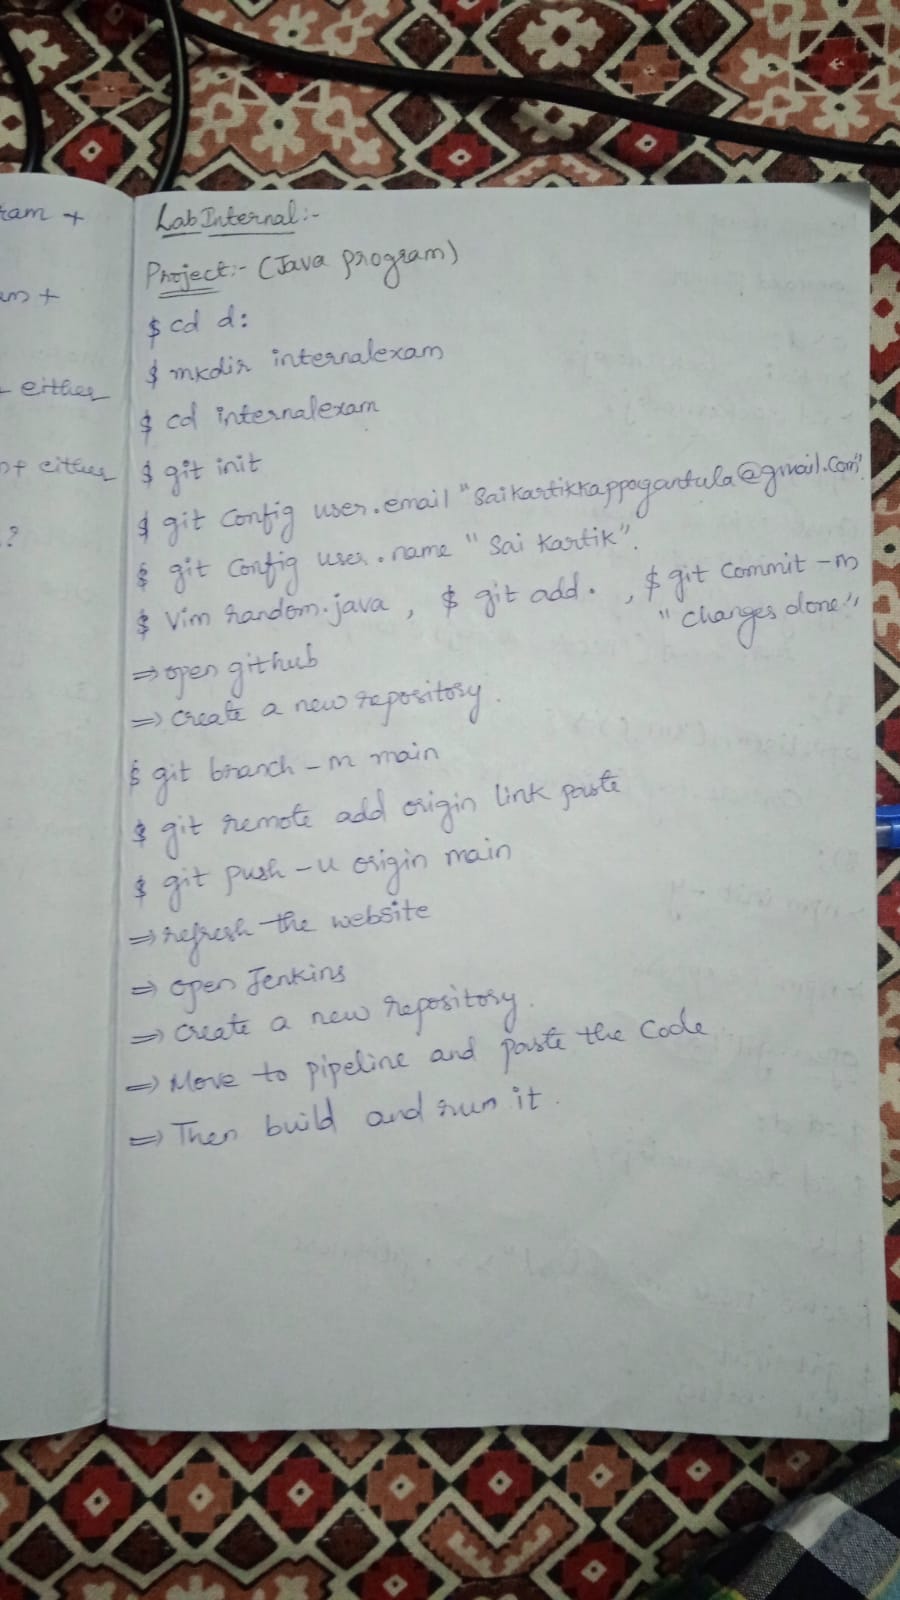 ram +
+
either
of either
?
Lab Internal:-
Project:- (Java program)
$ cd d:
$ mkdir internalexam
$ cd internalexam
$ git init
$ git config user.email "saikartikkappagantula@gmail.com".
$ git config user.name "Sai Kartik".
$ Vim random.java , $ git add . , $ git commit -m
"changes done".
⇒ open github
⇒ create a new repository.
$ git branch -m main
$ git remote add origin link paste
$ git push -u origin main
⇒ refresh the website
⇒ open Jenkins
⇒ create a new repository.
⇒ Move to pipeline and paste the code
⇒ Then build and run it.